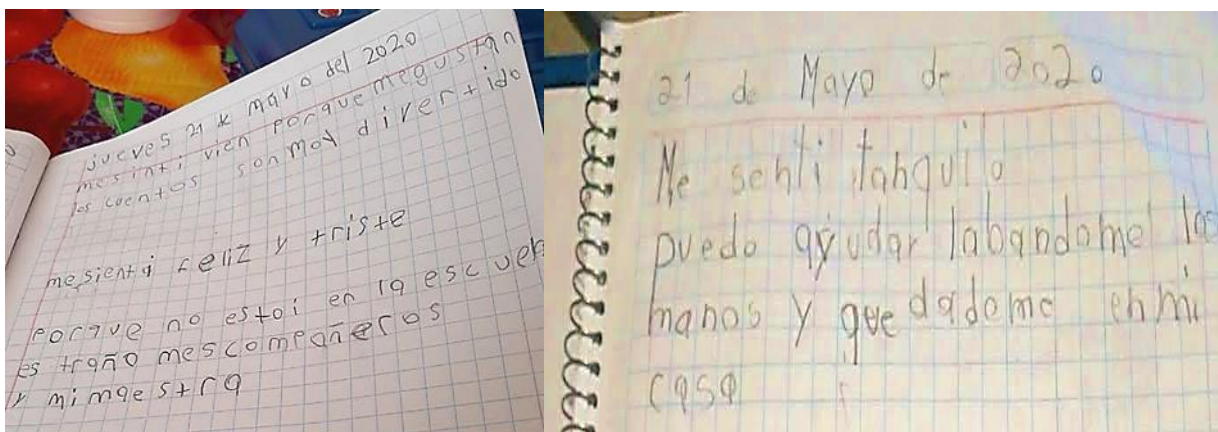 jueves 21 de mayo del 2020
mesinti vien porque megustan
los cuentos son moy divertido
mesienti feliz y triste
porque no estoi en la escuela
estraño mescompañeros
y mimaestra
21 de Mayo de 2020
Me senti tanquilo
puedo ayudar labandome las
manos y que dadome en mi
casa